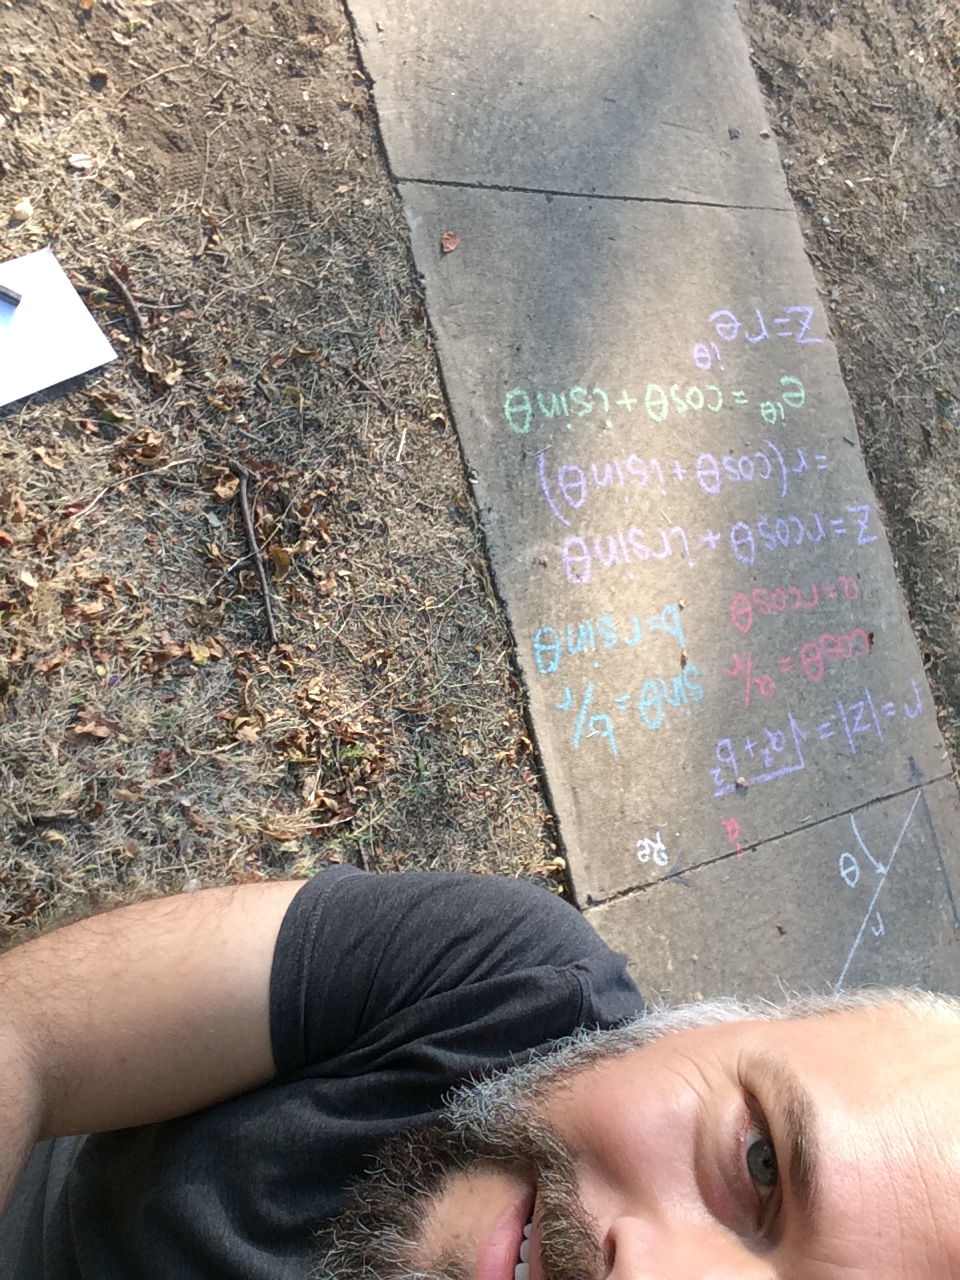 θ
r
Re
a
r=|z|=√a²+b²
cosθ=a/r sinθ=b/r
a=rcosθ b=rsinθ
z=rcosθ+irsinθ
=r(cosθ+isinθ)
e^iθ=cosθ+isinθ
z=re^iθ